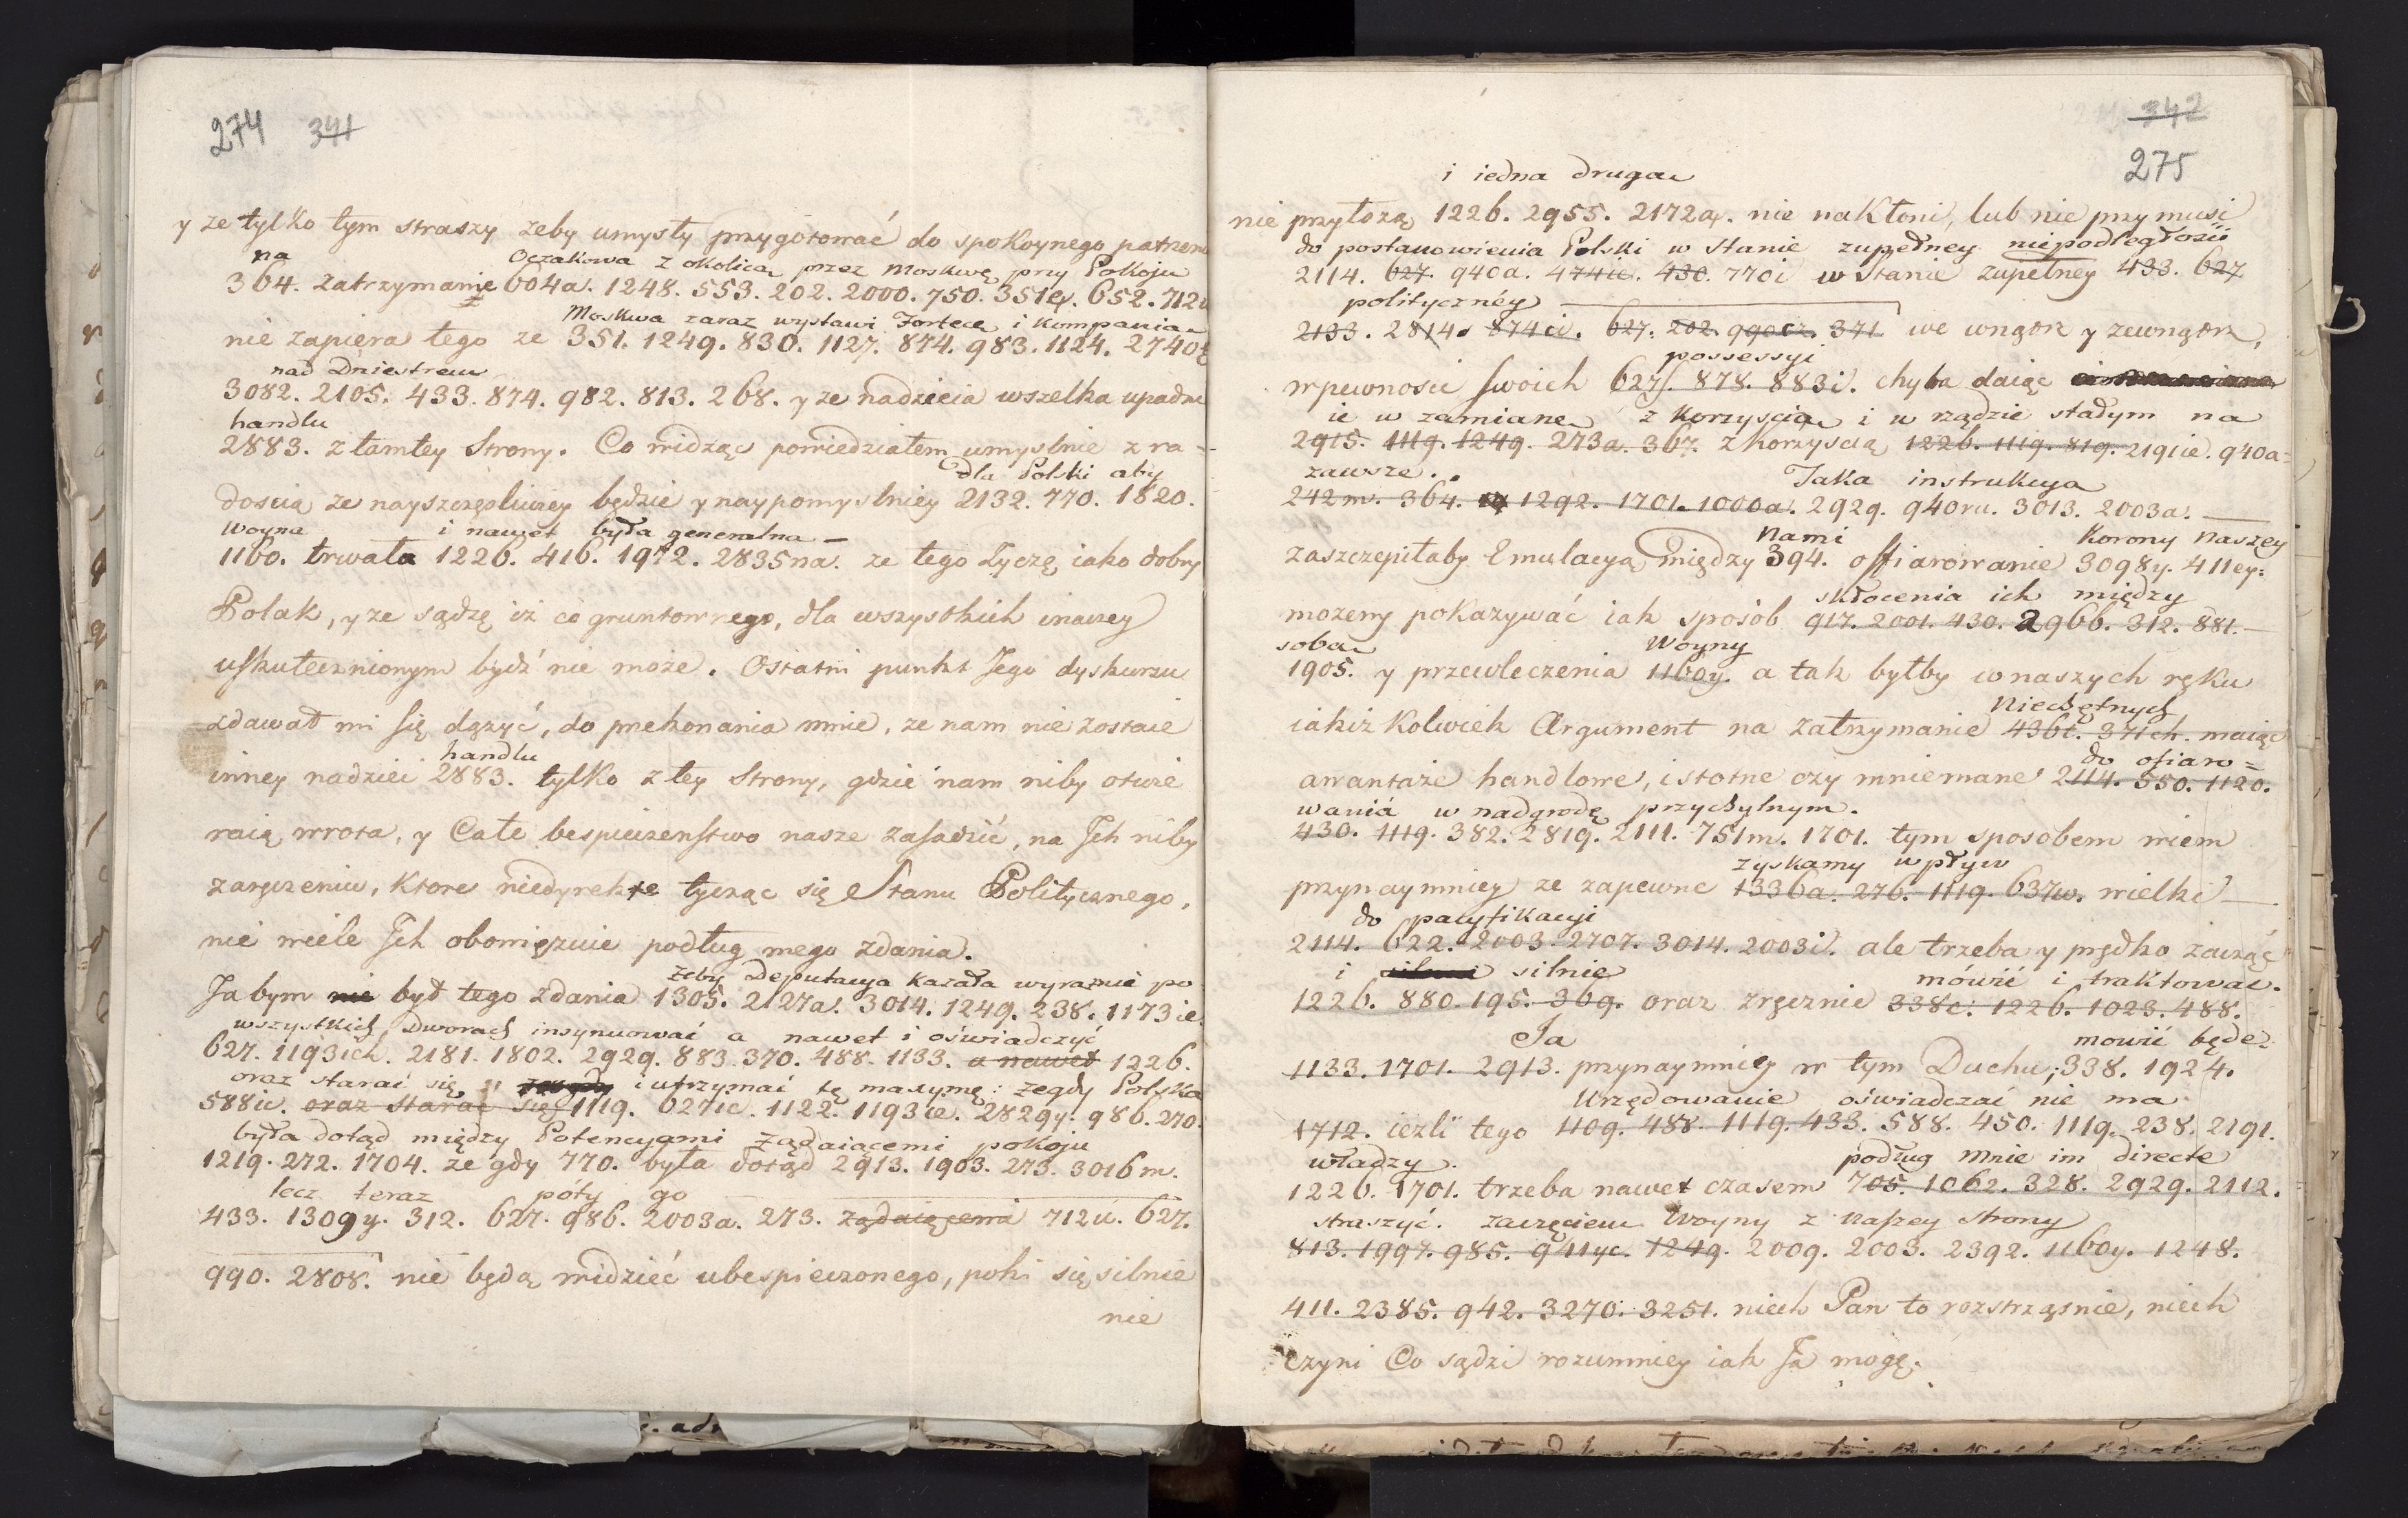 274 341
y ze tylko tym straszy zeby umysły przygotować do spokoynego patrzenia
na Oczakowa z okolicą przez Moskwę przy Pokoju
364. zatrzymanie 604a. 1248. 553. 202. 2000. 750. 351ę. 652. 712u
Moskwa zaraz wystawi Fortece i kompania
nie zapiera tego ze 351. 1249. 830. 1127. 874. 983. 1124. 2740
nad Dniestrem
3082. 2105. 433. 874. 982. 813. 268. y ze nadzieia wszelka upadnie
handlu
2883. z tamtey Strony. Co widząc powiedziałem umyslnie z ra=
dla Polski aby
doscią ze nayszczęsliwiey będzie y naypomyslniey 2132. 770. 1820.
woyna i nawet była generalna —
1160. trwała 1226. 416. 1972. 2835na. ze tego zyczę iako dobry
Polak, y ze sądzę iż co gruntownego, dla wszystkich inaczey
uskutecznionym bydź nie może. Ostatni punkt Jego dyskursu
zdawał mi się dążyć, do przekonania mnie, ze nam nie zostaie
handlu
inney nadziei 2883. tylko z tey Strony, gdzie nam niby otwie
raią wrota, y Całe bespieczenstwo nasze zasadzić, na Jch niby
zaręczeniu, ktore niedyrekte tycząc się Stanu Politycznego,
nie wiele Jch obowięzuie podług mego zdania.
żeby Deputacya kazała wyraznie po
Ja bym nie był tego zdania 1305. 2127a. 3014. 1249. 238. 1173ie.
wszystkich Dworach insynuować a nawet i oświadczyć
627. 1193ich. 2181. 1802. 2929. 883. 370. 488. 1133. a nawet 1226.
oraz starać się i utrzymać tę maxymę: ze gdy Polska
588ic. oraz starać się 1119. 627ic. 1122. 1193ie. 2829y. 986. 270.
była dotąd między Potencyami żądaiącemi pokoju
1219. 272. 1704. ze gdy 770. była dotąd 2913. 1903. 273. 3016m.
lecz teraz póty go
433. 1309y. 312. 627. 986. 2003a. 273. żądaiącemi 712u. 627.
990. 2808. nie będą widzieć ubespieczonego, poki się silnie
nie
342
275
i iedna druga
nie przyłożą 1226. 2955. 2172a. nie nakłoni, lub nie przymusi
do postanowienia Polski w stanie zupełney niepodległości
2114. 627. 940a. 474ie. 430. 770i w stanie zupełney 433. 627
polityczney
2133. 2814. 874ci. 627. 202. 990cz. 371 we wnątrz y zewnątrz,
possessyi
w pewnosci swoich 627f. 878. 883i. chyba daiąc
ie w zamianę z korzyscią i w rządzie stałym na
2915. 1119. 1249. 273a. 367. z korzyscią 1226. 1119. 819. 2191ie. 940a=
zawsze. Taka instrukcya
242m. 364. 1292. 1701. 1000a. 2929. 940ru. 3013. 2003a. —
Nami Korony Naszey
zaszczepiłaby Emulacyą między 394. offiarowanie 3098y. 411ey:
skłocenia ich między
możemy pokazywać iak sposób 917. 2001. 430. 2966. 312. 881. —
sobą Woyny
1905. y przewleczenia 1160y. a tak byłby w naszych ręku
Niechętnych
iakiż kolwiek Argument na zatrzymanie 436t. 371ch. maiąc
do ofiaro=
awantaże handlowe, istotne czy mniemane 2114. 550. 1120.
wania w nadgrodę przychylnym.
430. 1119. 382. 2819. 2111. 751m. 1701. tym sposobem wiem
zyskamy wpływ
przynaymniey ze zapewne 1336a. 276. 1119. 637w. wielki —
do pacyfikacyi
2114. 622. 2003. 2707. 3014. 2003i. ale trzeba y prędko zacząć
i silnie mówić i traktować.
1226. 880. 195. 369. oraz zręcznie 338c. 1226. 1023. 488.
Ja mowić będę
1133. 1701. 2913. przynaymniey w tym Duchu; 338. 1924.
Urzędowanie oświadczać nie ma
1712. iezli tego 1109. 488. 1119. 433. 588. 450. 1119. 238. 2191.
władzy. podług mnie im directe
1226. 1701. trzeba nawet czasem 705. 1062. 328. 2929. 2112.
straszyć. zaczęciem Woyny z Naszey strony
813. 1997. 985. 911yc. 1249. 2009. 2003. 2392. 1160y. 1248.
411. 2385. 942. 3270. 3251. niech Pan to rozstrząsnie, niech
czyni Co sądzi rozumniey iak Ja mogę.